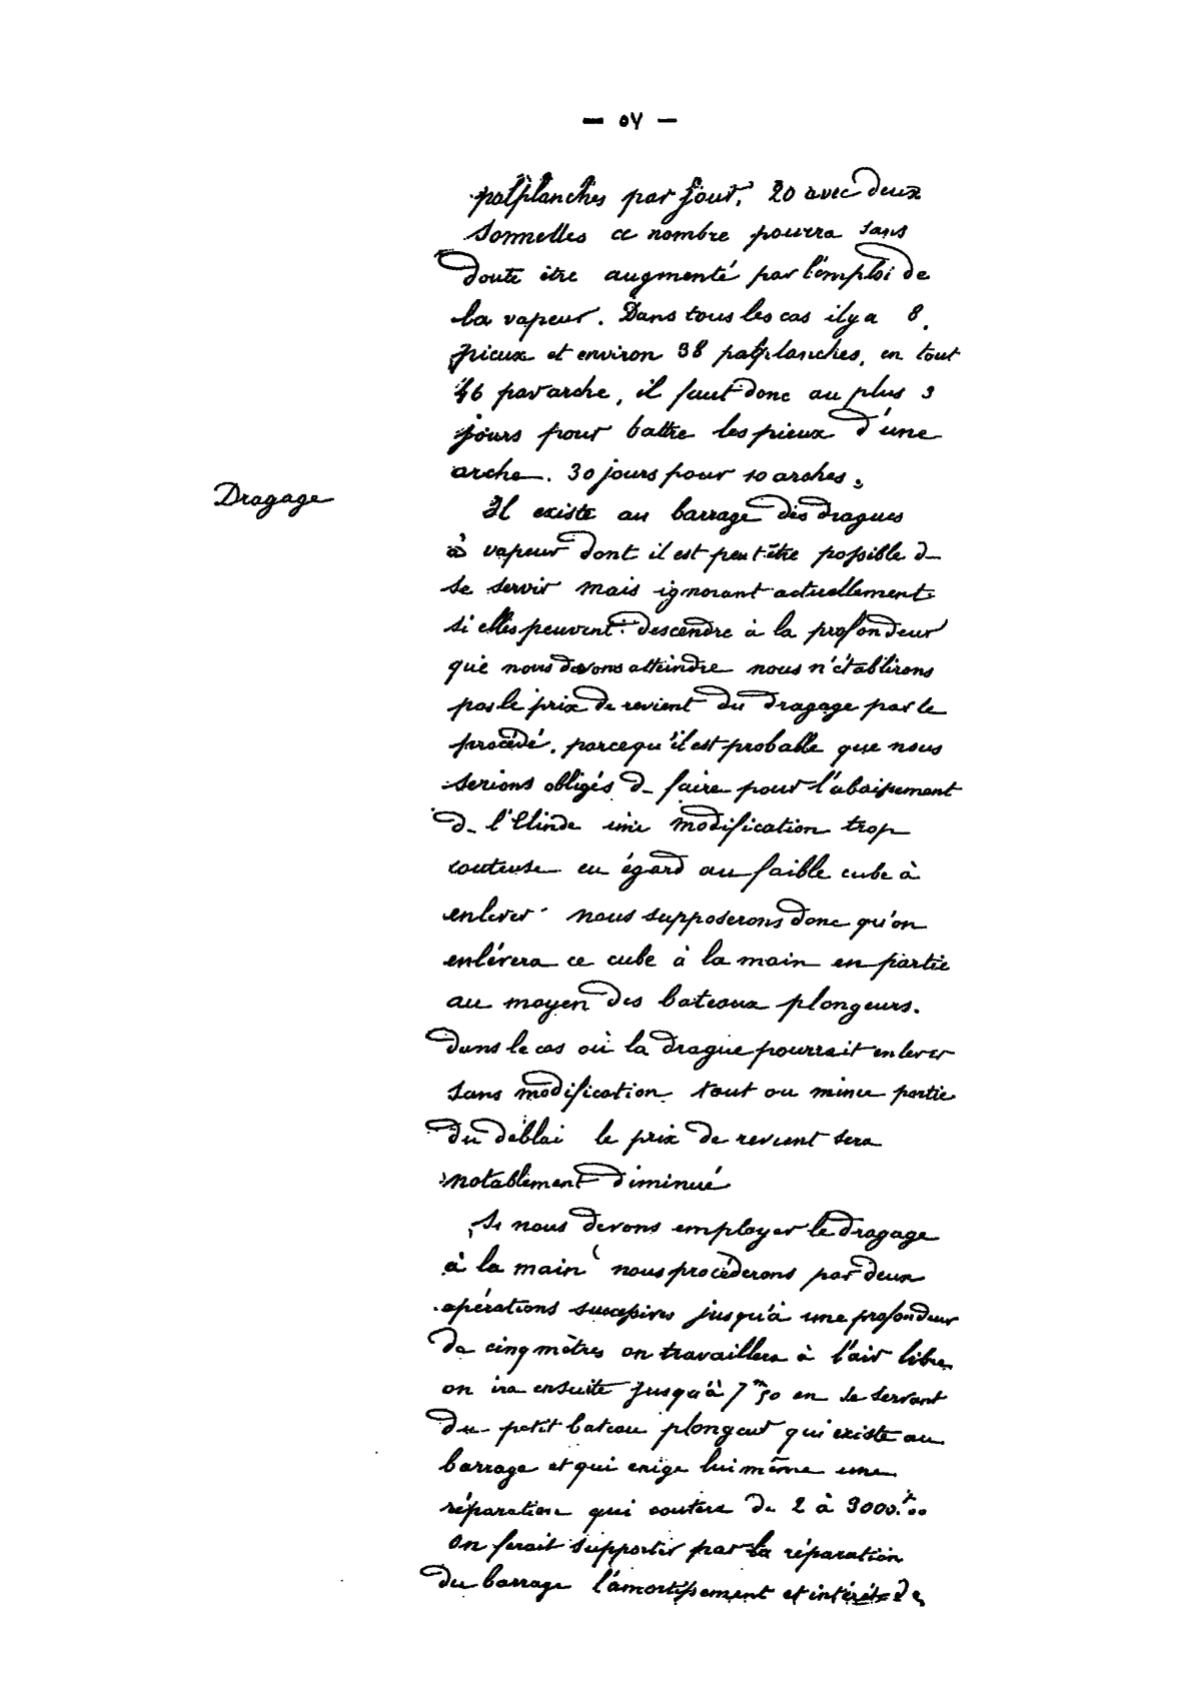 — ٥٧ —
palplanches par jour, 20 avec deux
sonnettes ce nombre pourra sans
doute être augmenté par l'emploi de
la vapeur. Dans tous les cas il y a 8
pieux et environ 38 palplanches, en tout
46 par arche, il faut donc au plus 3
jours pour battre les pieux d'une
arche. 30 jours pour 10 arches.
Dragage
Il existe au barrage des dragues
à vapeur dont il est peut être possible de
se servir mais ignorant actuellement
si elles peuvent descendre à la profondeur
que nous devons atteindre nous n'établirons
pas le prix de revient du dragage par ce
procédé, parcequ'il est probable que nous
serions obligés de faire pour l'abaissement
de l'Elinde une modification trop
couteuse eu égard au faible cube à
enlever nous supposerons donc qu'on
enlévera ce cube à la main en partie
au moyen des bateaux plongeurs.
dans le cas où la drague pourrait enlever
sans modification tout ou même partie
du déblai le prix de revient sera
notablement diminué
Si nous devons employer le dragage
à la main nous procéderons par deux
opérations successives jusqu'à une profondeur
de cinq mètres on travaillera à l'air libre
on ira ensuite jusqu'à 7<sup>m</sup>50 en se servant
du petit bateau plongeur qui existe au
barrage et qui exige lui même une
réparation qui coutera de 2 à 3000.<sup>f</sup>00
On ferait supporter par la réparation
du barrage l'amortissement et intérêt de